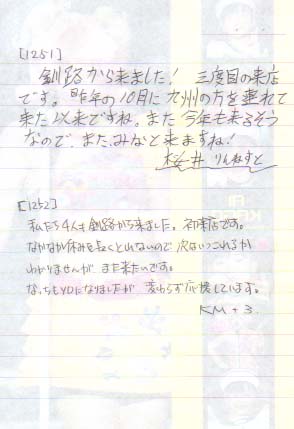 [1251]
釧路から来ました! 三度目の来店
です。昨年の10月に九州の方を連れて
来た以来ですね。また今年も来るそう
なので、また、みなと来ますね!
桜井 りんねすと
[1252]
私たち4人も釧路から来ました。初来店です。
なかなか休みを長くとれないので次はいつこれるか
わかりませんが また来たいです。
なっちもYDになりましたが、変わらず応援しています。
KM+3.